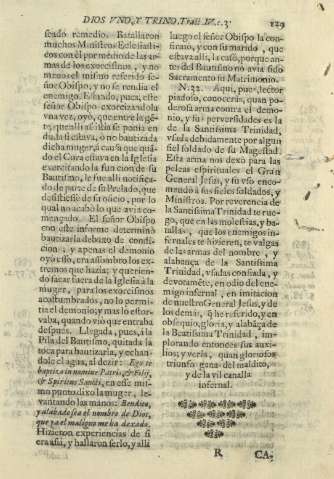 DIOS VNO, Y TRINO. Trat. IV. c. 3. 129
seado remedio. Batallaron
muchos Ministros Eclesiasti-
cos con èl por medio de las ar-
mas de los exorcismos, y no
menos el mismo referido se-
ñor Obispo, y no se rendia el
enemigo. Estando pues, este
señor Obispo exorcizandola
vna vez, oyò, que entre la gẽ-
te, que alli assistia se ponia en
duda si estava, ò no bautizada
dicha muger, à causa que quã-
do el Cura estava en la Iglesia
exercitando la funcion de su
Bautismo, le fue alli notifica-
do de parte de su Prelado, que
desistiesse de su oficio, por lo
qual no acabò lo que avia co-
mençado. El señor Obispo
con este informe determinò
bautizarla debaxo de condi-
cion, y apenas el demonio
oyò esso, era assombro los ex-
tremos que hazia; y querien-
do sacar fuera de la Iglesia à la
muger, para los exorcismos
acostumbrados, no lo permi-
tia el demonio; y mas lo estor-
vaba, quando vio que entraba
despues. Llegada, pues, à la
Pila del Bautismo, quitada la
toca para bautizarla, y echan-
dole el agua, al dezir: Ego te
baptizo in nomine Patris, & Filij,
& Spiritus Sancti, en este mis-
mo punto dixo la muger, le-
vantando las manos: Bendito,
y alabado sea el nombre de Dios,
que ya el maligno me ha dexado.
Hizieron experiencias de si
era assi, y hallaron serlo, y alli
luego el señor Obispo la con-
firmò, y con su marido, que
estava alli, la casò, porque an-
tes del Bautismo no avia sido
Sacramento su Matrimonio.
N. 32. Aqui, pues, lector
piadoso, conoceràs, quan po-
derosa arma contra el demo-
nio, y sus perversidades es la
de la Santissima Trinidad,
vsada debidamente por algun
fiel soldado de su Magestad.
Esta arma nos dexò para las
peleas espirituales el Gran
General Jesus, y su vso enco-
mendò à sus fieles soldados, y
Ministros. Por reverencia de
la Santissima Trinidad te rue-
go, que en las molestias, y ba-
tallas, que los enemigos in-
fernales te hizieren, te valgas
de las armas del nombre, y
alabança de la Santissima
Trinidad, vsadas confiada, y
devotamẽte, en odio del ene-
migo infernal, en imitacion
de nuestro General Jesus, y de
los demas, q̃ he referido, y en
obsequio, gloria, y alabãça de
la Beatissima Trinidad, im-
plorando entonces sus auxi-
lios; y veràs, quan gloriosos
triunfos gana del maldito,
y de la vil canalla
infernal.
R CA-